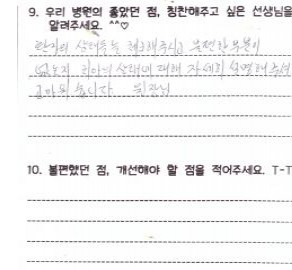 9. 우리 병원의 좋았던 점, 칭찬해주고 싶은 선생님을
알려주세요. ^^♡
환자의 상태등을 체크해주시고 불편한 부분이
없는지 치아의 상태에 대해 자세히 설명해주셔
고마웠습니다. 원장님
10. 불편했던 점, 개선해야 할 점을 적어주세요. T-T